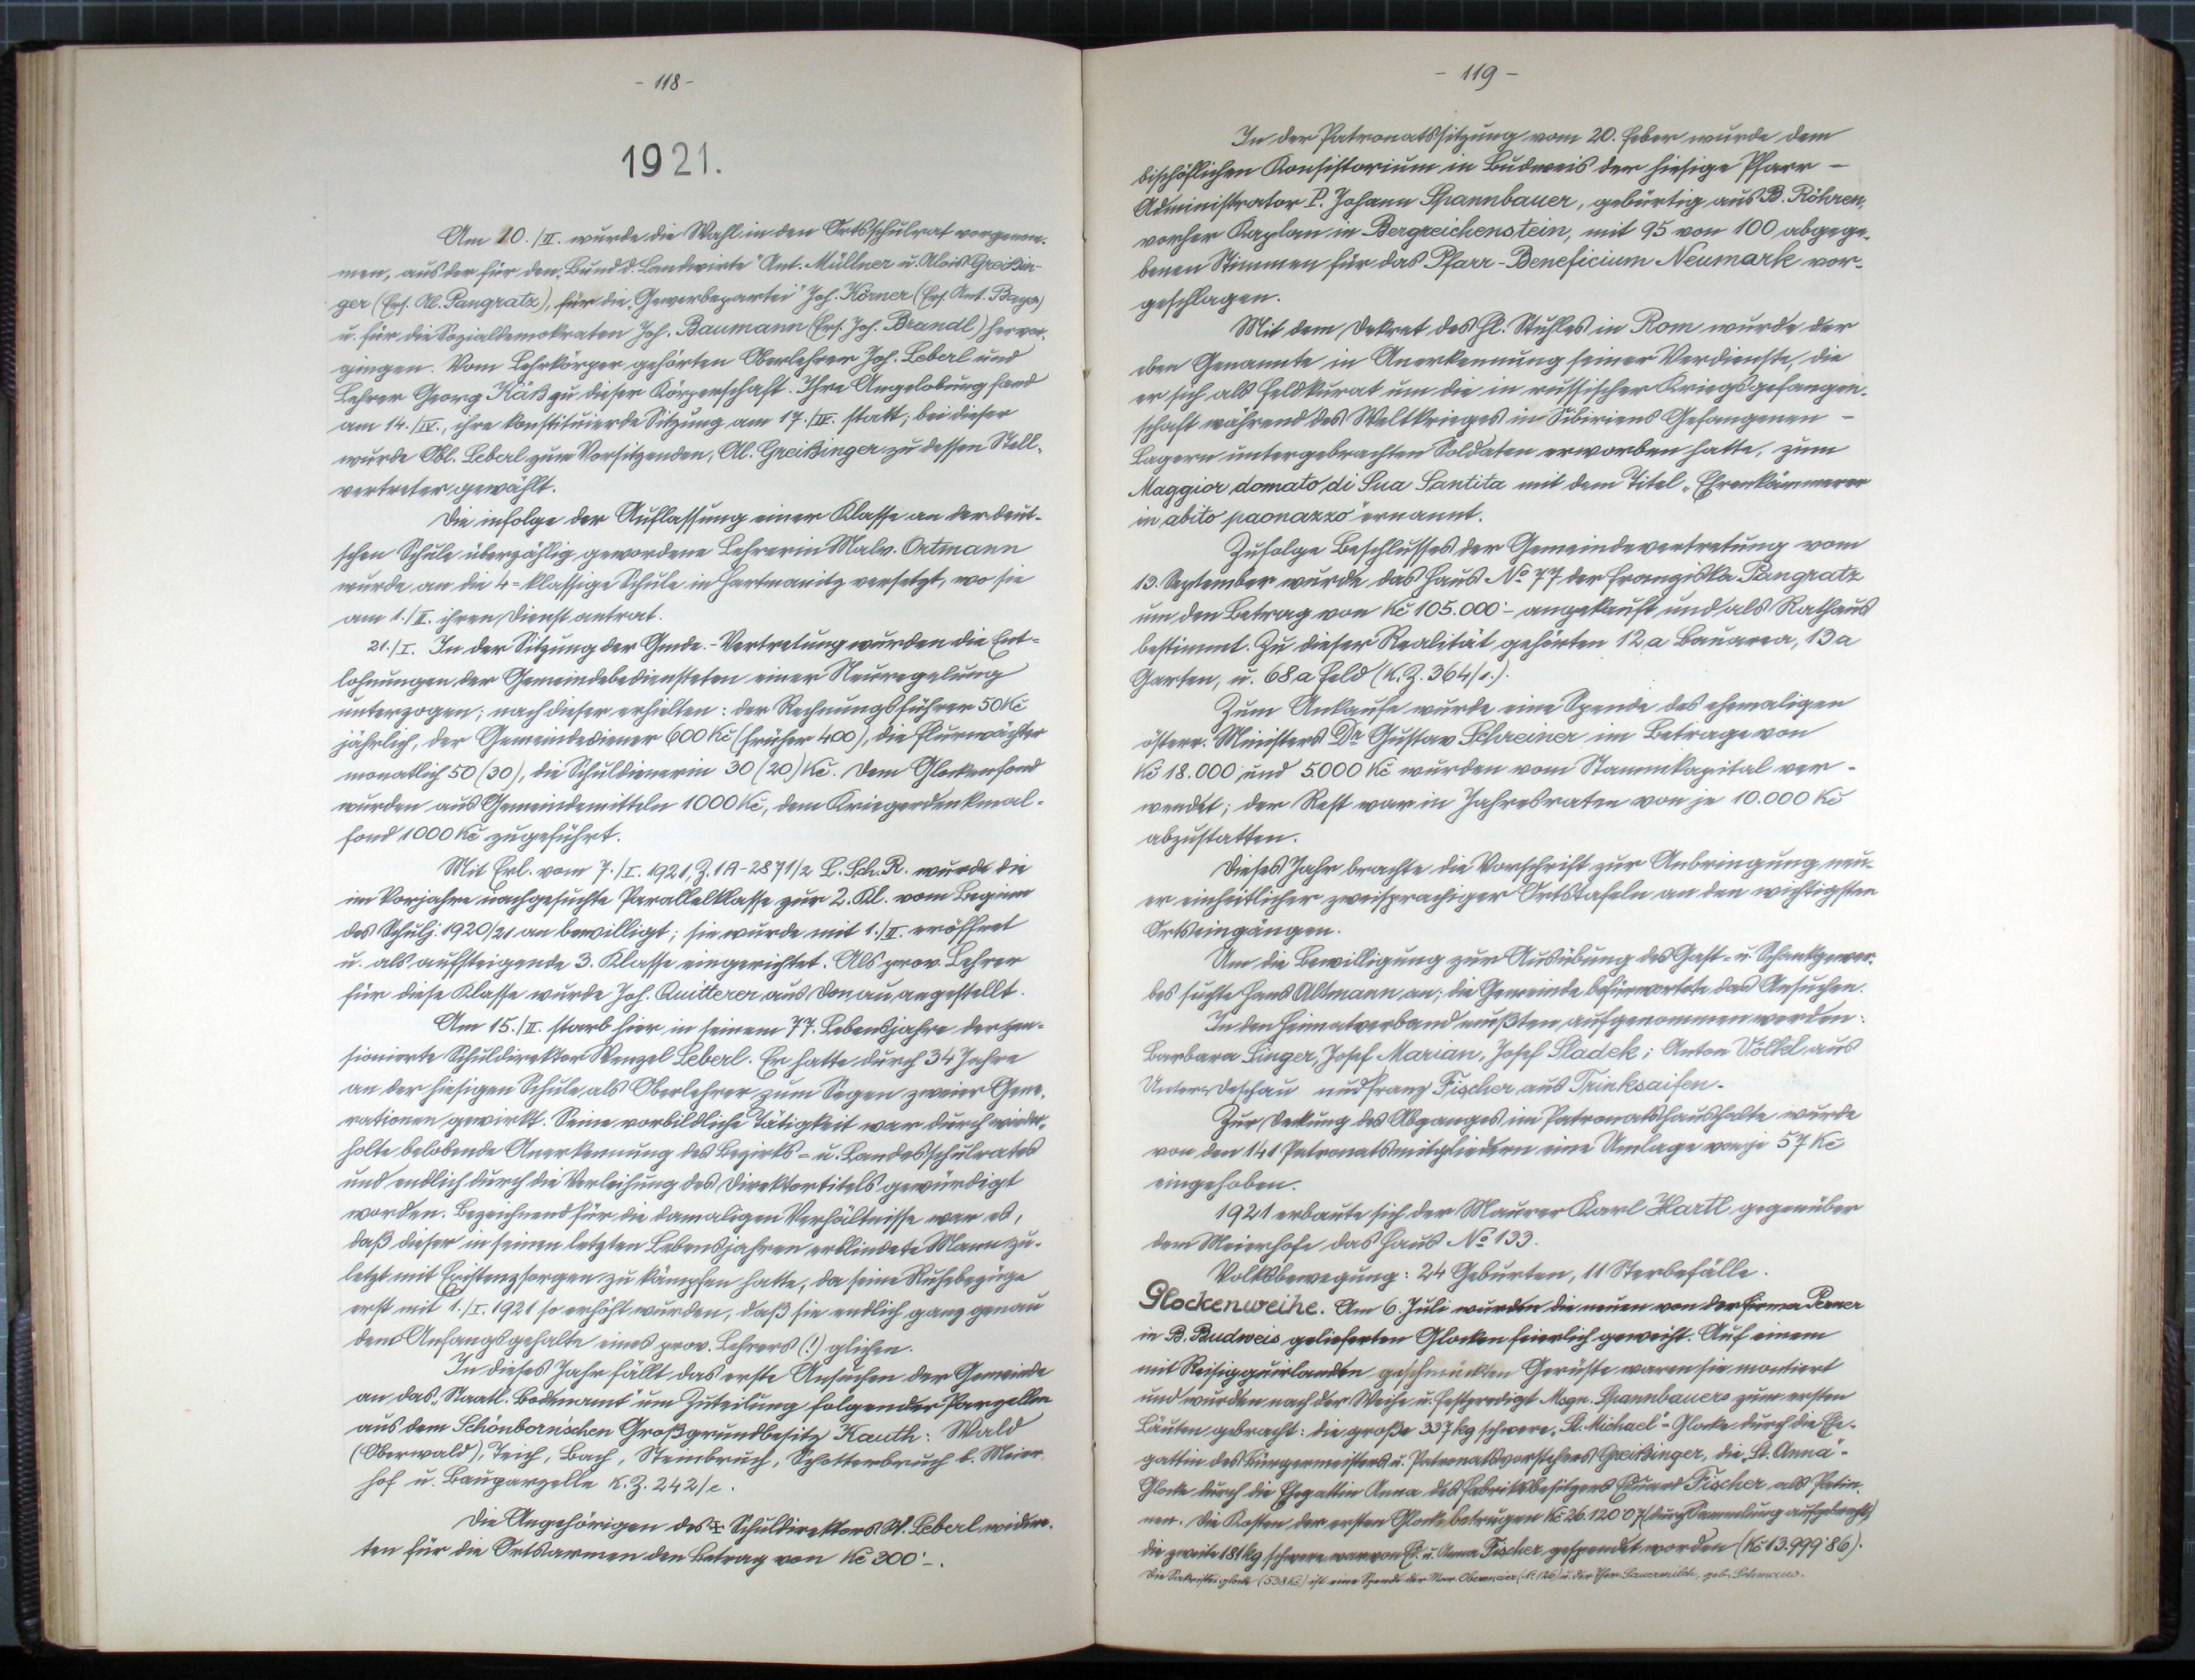 - 118 -
1921.
Am 10./II. wurde die Wahl in den Ortsschulrat vorgenom-
men, aus der für den „Bund d. Landwirte" Ant. Müllner u. Alois Greißin-
ger (Ers. Al. Pangratz), für die „Gewerbepartei" Joh. Körner (Ers. Ant. Bayer)
u. für die Sozialdemokraten Joh. Baumann (Ers. Joh. Brandl) hervor-
gingen. Vom Lehrkörper gehörten Oberlehrer Joh. Leberl und
Lehrer Georg Käß zu dieser Körperschaft. Ihre Angelobung fand
am 14./IV., ihre konstituierde Sitzung am 17./IV. statt; bei dieser
wurde Obl. Leberl zum Vorsitzenden, Al. Greißinger zu dessen Stell-
vertreter gewählt.
Die infolge der Auflassung einer Klasse an der deut-
schen Schule überzählig gewordene Lehrerin Malv. Ortmann
wurde an die 4=klassige Schule in Hartmanitz versetzt, wo sie
am 1./II. ihren Dienst antrat.
21./I. In der Sitzung der Gmde.-Vertretung wurden die Ent-
lohnungen der Gemeindebediensteten einer Neuregelung
unterzogen; nach dieser erhielten: der Rechnungsführer 50 Kč
jährlich, der Gemeindediener 600 Kč (früher 400), die Flurwächter
monatlich 50 (30), die Schuldienerin 30 (20) Kč. Dem Glockenfond
wurden aus Gemeindemitteln 1000 Kč, dem Kriegerdenkmal-
fond 1000 Kč zugeführt.
Mit Erl. vom 7./I. 1921, Z. 1A-2871/2 L. Sch. R. wurde die
im Vorjahre nachgesuchte Parallelklasse zur 2. Kl. vom Beginn
des Schulj. 1920/21 an bewilligt; sie wurde mit 1./II. eröffnet
u. als aufsteigende 3. Klasse eingerichtet. Als prov. Lehrer
für diese Klasse wurde Joh. Quitterer aus Donau angestellt.
Am 15./II. starb hier in seinem 77. Lebensjahre der pen-
sionierte Schuldirektor Wenzel Leberl. Er hatte durch 34 Jahre
an der hiesigen Schule als Oberlehrer zum Segen zweier Gene-
rationen gewirkt. Seine vorbildliche Tätigkeit war durch wieder-
holte belobende Anerkennung des Bezirks- u. Landesschulrates
und endlich durch die Verleihung des Direktortitels gewürdigt
worden. Bezeichnend für die damaligen Verhältnisse war es,
daß dieser in seinen letzten Lebensjahren erblindete Mann zu-
letzt mit Existenzsorgen zu kämpfen hatte, da seine Ruhebezüge
erst mit 1./I. 1921 so erhöht wurden, daß sie endlich ganz genau
dem Anfangsgehalte eines prov. Lehrers (!) glichen.
In dieses Jahr fällt das erste Ansuchen der Gemeinde
an das „Staatl. Bodenamt" um Zuteilung folgender Parzellen
aus dem Schönborn'schen Großgrundbesitz Kauth: Wald
(Oberwald), Teich, Bach, Steinbruch, Schotterbruch b. Meier-
hof u. Bauparzelle K. Z. 242/c.
Die Angehörigen des † Schuldirektors W. Leberl widme-
ten für die Ortsarmen den Betrag von Kč 300·-.
- 119 -
In der Patronatssitzung vom 20. Feber wurde dem
bischöflichen Konsistorium in Budweis der hiesige Pfarr-
Administrator P. Johann Spannbauer, gebürtig aus B. Röhren,
vorher Kaplan in Bergreichenstein, mit 95 von 100 abgege-
benen Stimmen für das Pfarr-Beneficium Neumark vor-
geschlagen.
Mit dem Dekret des hl. Stuhles in Rom wurde der
eben Genannte in Anerkennung seiner Verdienste, die
er sich als Feldkurat um die in russischer Kriegsgefangen-
schaft während des Weltkrieges in Sibiriens Gefangenen-
Lagern untergebrachten Soldaten erworben hatte, zum
Maggior domato di Sua Santita mit dem Titel „Ehrenkämmerer
in abito paonazzo" ernannt.
Zufolge Beschlusses der Gemeindevertretung vom
13. September wurde das Haus No 77 der Franziska Pangratz
um den Betrag von Kč 105.000·- angekauft und als Rathaus
bestimmt. Zu dieser Realität gehörten 12 a Bauarea, 13 a
Garten, u. 68 a Feld (K. Z. 364/1.).
Zum Ankaufe wurde eine Spende des ehemaligen
österr. Ministers Dr Gustav Schreiner im Betrage von
Kč 18.000 und 5000 Kč wurden vom Stammkapital ver-
wendet; der Rest war in Jahresraten von je 10.000 Kč
abzustatten.
Dieses Jahr brachte die Vorschrift zur Anbringung neu-
er einheitlicher zweisprachiger Ortstafeln an den wichtigsten
Ortseingängen.
Um die Bewilligung zur Ausübung des Gast- u. Schankgewer-
bes suchte Hans Altmann an; die Gemeinde befürwortete das Ansuchen.
In den Heimatverband mußten aufgenommen werden:
Barbara Singer, Josef Marian, Josef Sladek; Anton Völkl aus
Unter-Deschau und Franz Fischer aus Trinksaifen.
Zur Deckung des Abganges im Patronatshaushalte wurde
von den 141 Patronatsmitgliedern eine Umlage von je 57 Kč
eingehoben.
1921 erbaute sich der Maurer Karl Hartl gegenüber
dem Meierhofe das Haus No 133.
Volksbewegung: 24 Geburten, 11 Sterbefälle.
Glockenweihe. Am 6. Juli wurden die neuen von der Firma Perner
in B. Budweis gelieferten Glocken feierlich geweiht. Auf einem
mit Reisigguirlanden geschmückten Gerüste waren sie montiert
und wurden nach der Weihe u. Festpredigt Msgn. Spannbauers zum ersten
Läuten gebracht: die große 337 kg schwere „St. Michael"-Glocke durch die Ehe-
gattin des Bürgermeisters u. Patronatsvorstehers Greißinger, die „St. Anna"-
Glocke durch die Ehegattin Anna des Fabriksbesitzers Eduard Fischer als Patin-
nen. Die Kosten der ersten Glocke betrugen Kč 26.120·07 (durch Sammlung aufgebracht)
die zweite 181 kg schwere war von Ed. u. Anna Fischer gespendet worden (Kč 13.999·86).
Die Sakristeiglocke (538 Kč) ist eine Spende der Mar. Obermaier (No 126) u. der Ther. Sauermilch, geb. Lehmann.